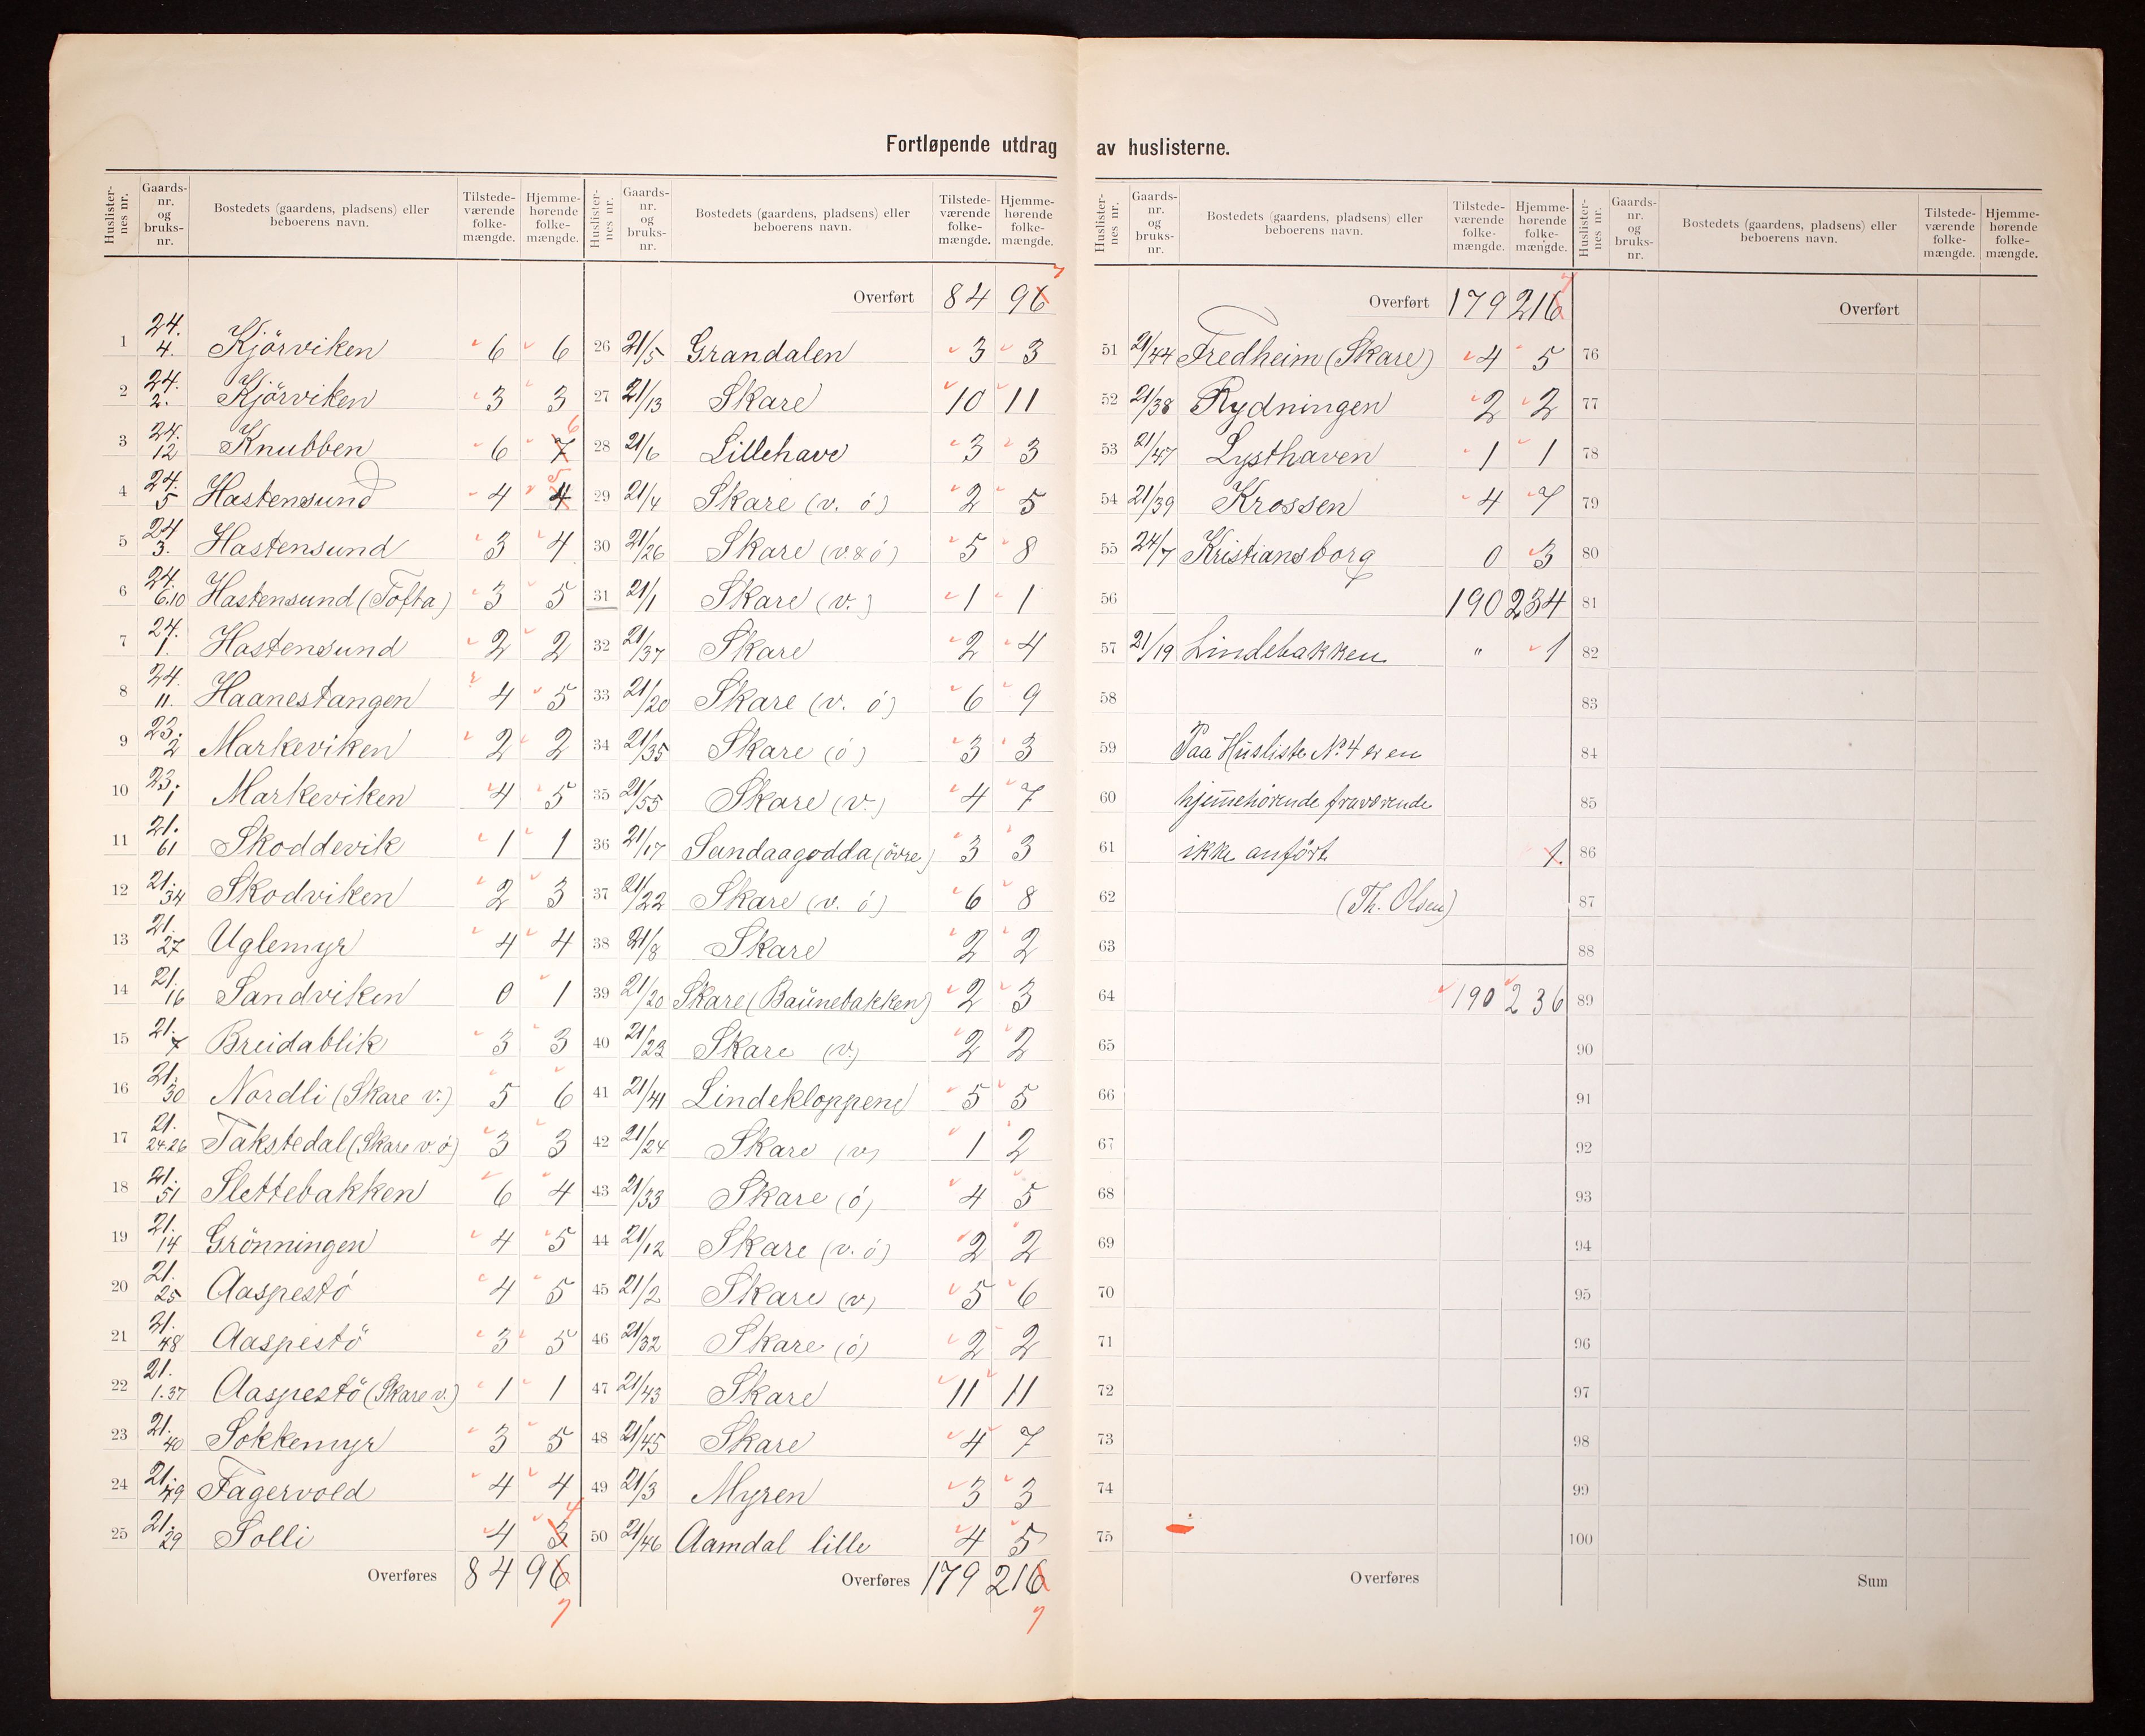 Fortløpende utdrag av huslisterne.
Huslister-nes nr. Gaards-nr. og bruks-nr. Bostedets (gaardens, pladsens) eller beboerens navn. Tilstede-værende folke-mængde. Hjemme-hørende folke-mængde.
1 24. 4. Kjörviken 6 6
2 24. 2. Kjörviken 3 3
3 24. 12 Knubben 6 7 6
4 24. 5 Hastensund 4 4 5
5 24 3. Hastensund 3 4
6 24. 6.10 Hastensund (Tofta) 3 5
7 24. 1. Hastensund 2 2
8 24. 11. Haanestangen 4 5
9 23. 2 Markeviken 2 2
10 23. 1 Markeviken 4 5
11 21. 61 Skoddevik 1 1
12 21. 34 Skodviken 2 3
13 21. 27 Uglemyr 4 4
14 21. 16 Sandviken 0 1
15 21. 7 Breidablik 3 3
16 21. 30 Nordli (Skare v.) 5 6
17 21. 24.26 Takstedal (Skare v. ö) 3 3
18 21. 51 Slettebakken 6 4
19 21. 14 Grönningen 4 5
20 21. 25 Aaspestö 4 5
21 21. 48 Aaspestö 3 5
22 21. 1.37 Aaspestö (Skare v.) 1 1
23 21. 40 Sokkemyr 3 5
24 21. 49 Fagervold 4 4
25 21. 29 Solli 4 3 4
Overføres 84 96 7
Huslister-nes nr. Gaards-nr. og bruks-nr. Bostedets (gaardens, pladsens) eller beboerens navn. Tilstede-værende folke-mængde. Hjemme-hørende folke-mængde.
Overført 84 96 7
26 21/5 Grandalen 3 3
27 21/13 Skare 10 11
28 21/6 Lillehave 3 3
29 21/4 Skare (v. ö) 2 5
30 21/26 Skare (v. & ö) 5 8
31 21/1 Skare (v.) 1 1
32 21/37 Skare 2 4
33 21/20 Skare (v. ö) 6 9
34 21/35 Skare (ö) 3 3
35 21/55 Skare (v.) 4 7
36 21/17 Sandaagodda (övre) 3 3
37 21/22 Skare (v. ö) 6 8
38 21/8 Skare 2 2
39 21/20 Skare (Baunebakken) 2 3
40 21/23 Skare (v.) 2 2
41 21/41 Lindekloppene 5 5
42 21/24 Skare (v) 1 2
43 21/33 Skare (ö) 4 5
44 21/12 Skare (v. ö) 2 2
45 21/2 Skare (v) 5 6
46 21/32 Skare (ö) 2 2
47 21/43 Skare 11 11
48 21/45 Skare 4 7
49 21/3 Myren 3 3
50 21/46 Aamdal lille 4 5
Overføres 179 216 7
Huslister-nes nr. Gaards-nr. og bruks-nr. Bostedets (gaardens, pladsens) eller beboerens navn. Tilstede-værende folke-mængde. Hjemme-hørende folke-mængde.
Overført 179 216 7
51 21/44 Fredheim (Skare) 4 5
52 21/38 Rydningen 2 2
53 21/47 Lysthaven 1 1
54 21/39 Krossen 4 7
55 24/7 Kristiansborg 0 3
56 190 234
57 21/19 Lindebakken " 1
58
59 Paa Husliste No. 4 er en
60 hjemmehörende fraværende
61 ikke anfört 1.
62 (Th. Olsen)
63
64 190 236
65
66
67
68
69
70
71
72
73
74
75
Overføres
Huslister-nes nr. Gaards-nr. og bruks-nr. Bostedets (gaardens, pladsens) eller beboerens navn. Tilstede-værende folke-mængde. Hjemme-hørende folke-mængde.
Overført
76
77
78
79
80
81
82
83
84
85
86
87
88
89
90
91
92
93
94
95
96
97
98
99
100
Sum